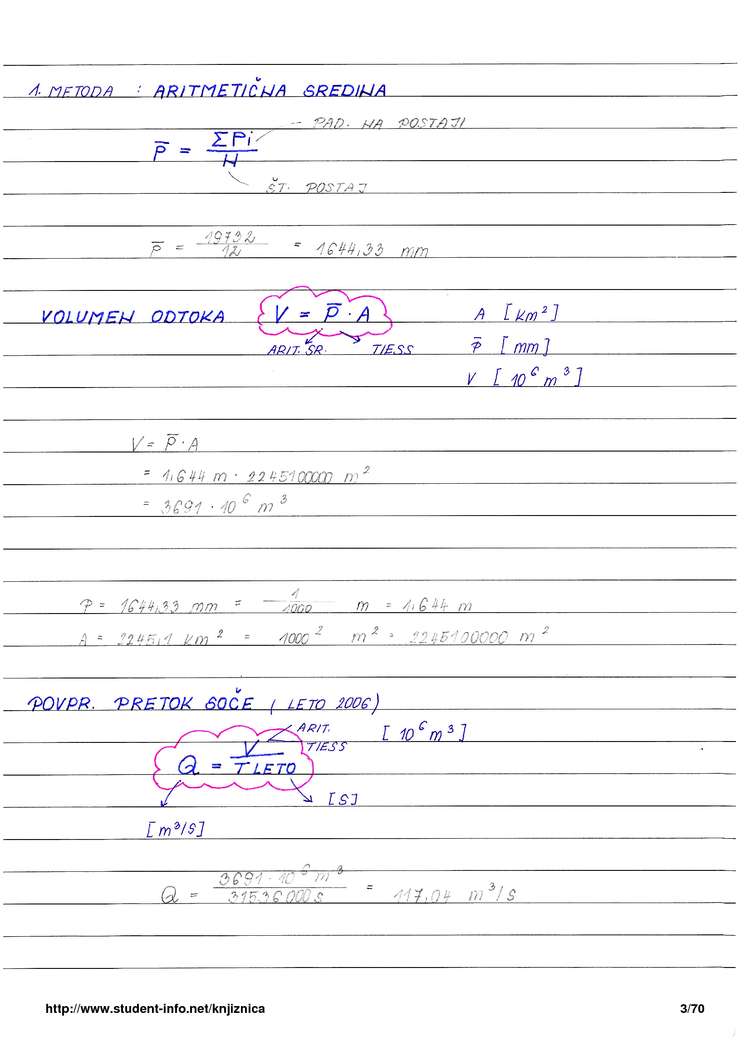 1. METODA : ARITMETIČNA SREDINA
P̅ = ΣPi / N
PAD. NA POSTAJI
ŠT. POSTAJ
P̅ = 19732 / 12 = 1644,33 mm
VOLUMEN ODTOKA V = P̅ · A A [km²]
ARIT. SR. TIESS P̅ [mm]
V [10⁶ m³]
V = P̅ · A
= 1,644 m · 2245100000 m²
= 3691 · 10⁶ m³
P = 1644,33 mm = 1/1000 m = 1,644 m
A = 2245,1 km² = 1000² m² = 2245100000 m²
POVPR. PRETOK SOČE (LETO 2006)
ARIT. [10⁶ m³]
TIESS
Q = V / T LETO
[S]
[m³/S]
Q = 3691 · 10⁶ m³ / 31536000 s = 117,04 m³/s
http://www.student-info.net/knjiznica 3/70